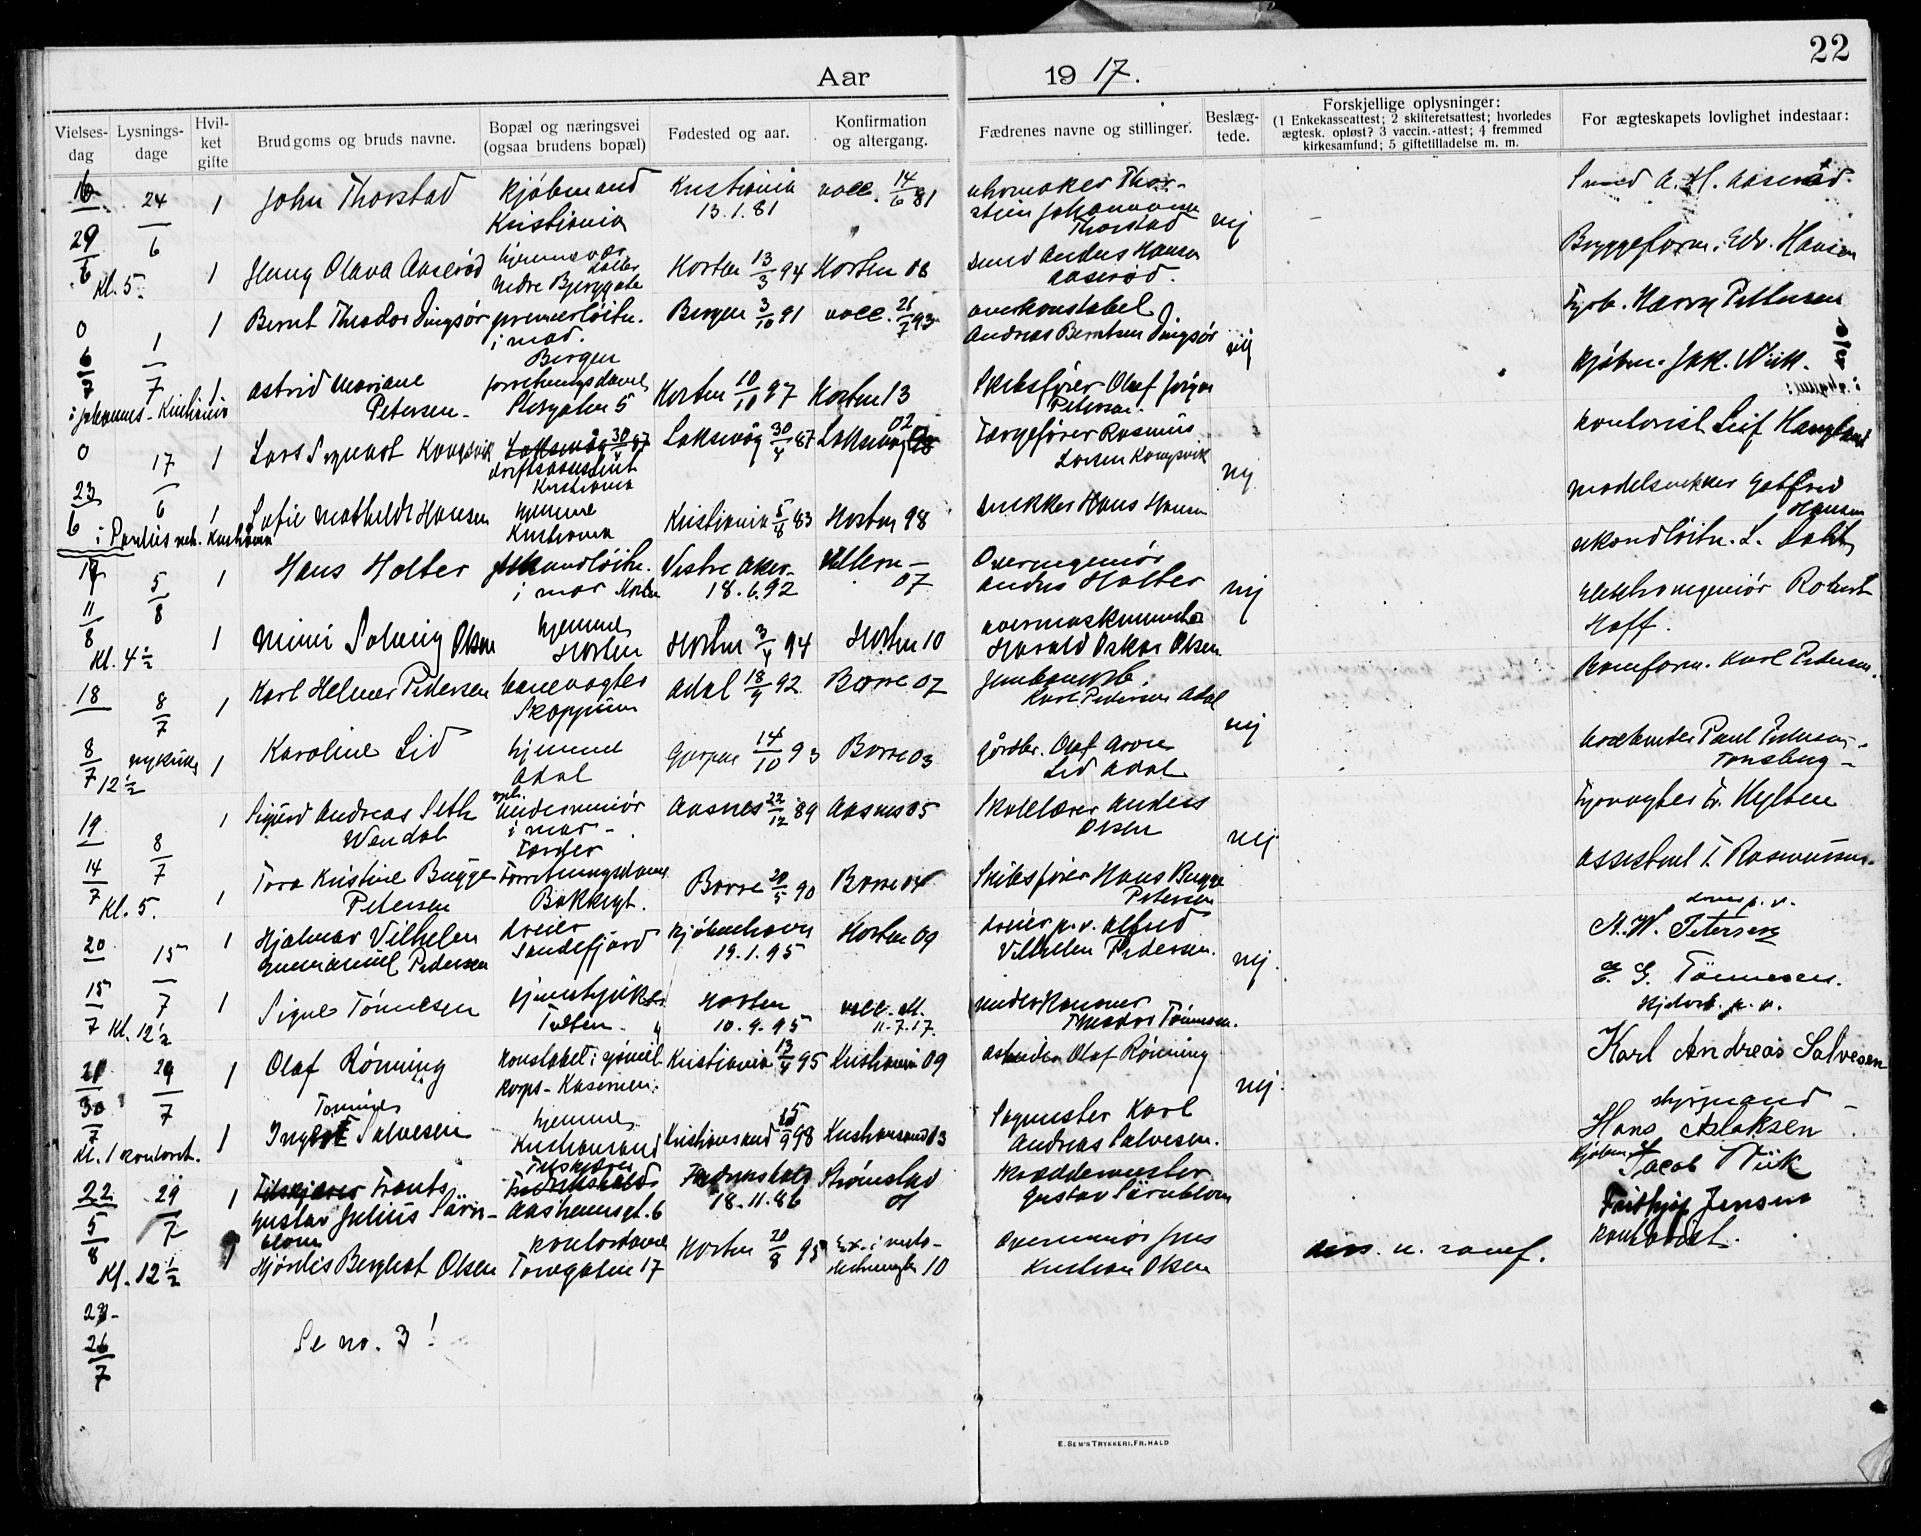 22
Aar 1917.
Vielses-dag
Lysnings-dage
Hvil-ket gifte
Brudgoms og bruds navne.
Bopæl og næringsvei (ogsaa brudens bopæl)
Fødested og aar.
Konfirmation og altergang.
Fædrenes navne og stillinger.
Beslæg-tede.
Forskjellige oplysninger: (1 Enkekasseattest; 2 skifteretsattest; hvorledes ægtesk. opløst? 3 vaccin.-attest; 4 fremmed kirkesamfund; 5 giftetilladelse m. m.
For ægteskapets lovlighet indestaar:
16 24 1 John Thorstad kjøbmand Kristiania Kristiania 13.1.81 vacc. 14/6 81 uhrmaker Thorstein Johannesen Thorstad nej Smed A. H. Aaserød.
29/6 6 Kl. 5. 1 Olava Aaserød hjemme Nedre Bjerggate Horten 13/3 94 Horten 08 smed Anders Hansen Aaserød. Bryggeform. Edv. Hansen
0 1 1 Bernt Theodor Dingsør premierløitn. i mar. Bergen Bergen 3/10 91 vacc. 21/7 93 overkonstabel Andreas Berntsen Dingsør nej Fyrb. Harry Pettersen
6/7 7 1 Astrid Mariane Petersen forretningsdame Storgaten 5 Horten 10/10 97 Horten 13 Skibsfører Olaf Petersen. kjøbm. Jak. Wiik.
i Johannes - Kristiania
0 17 1 Lars Kongsvik Laksevåg 30/4 87 driftsassistent Kristiania Laksevåg 30/4 87 Laksevåg 02 Færgefører Rasmus Larsen Kongsvik nej kontorist Leif
23/6 6 1 Sofie Mathilde Hansen hjemme Kristiania Kristiania 5/4 83 Horten 98 snekker Hans Hansen modelsnekker Gotfred Hansen
i Paulus Kristiania
17 5 1 Hans Holter sekondløitn. i mar Horten Vestre Aker 18.6.92 Ullern 07 Overingeniør Anders Holter nej sekondløitn. L. Dahl
11/8 8 Kl. 4½ 1 Mimi Solveig Olsen hjemme Horten Horten 3/4 94 Horten 10 overmaskinmester Harald Oskar Olsen. elektroingeniør Robert Hoff.
18 8/7 1 Karl Helmer Pedersen banevogter Skoppum Adal 18/9 92 Borre 07 Karl Pedersen Adal nej baneform. Karl Pedersen.
8/7 12½ nykirke 1 Karoline Lid hjemme Adal Gjerpen 14/10 93 Borre 03 gårdbr. Olaf Lid Adal Paul Pedersen Tønsberg
19 8/7 1 Sigurd Andreas Seth Wendal underminør i mar. Aasnes 22/12 89 Aasnes 05 Skolelærer Anders Olsen nej Fyrvogter Fr. Hylten
14/7 Kl. 5. 1 Tora Kristine Bugge Petersen Forretningsdame Bakkegt. Borre 20/5 90 Borre 04 Skibsfører Hans Bugge Petersen assistent T. Rasmussen
20 15 1 Hjalmar Vilhelm Emmanuel Pedersen dreier Sandefjord Kjøbenhavn 19.1.95 Horten 09 dreier p.v. Alfred Vilhelm Pedersen. nej. dreier p.v. A. W. Petersen
15/7 Kl. 12½ 7 1 Signe Tønnesen Tveten Horten 10.9.95 vacc. att. 11.7.17. underkanoner Theodor Tønnesen. G. Tønnesen.
21 29/7 1 Olaf Rønning konstabel i sjømil. korps - Kasernen. Kristiania 13/4 95 Kristiania 09 Olaf Rønning nej. Karl Andreas Salvesen
30/7 Kl. 1 kontoret. 1 Ingbot Tomine Salvesen hjemme Kristiansand Kristiansand 98 Kristiansand 13 Sagmester Karl Andreas Salvesen. styrmand Hans Aslaksen
22 29/7 1 Frants Gustav Julius Särnblom Aasheimsgt. 6 Fredrikshald 18.11.86 Strømstad 01 Skræddermester Gustav Särnblom kjøbm. Jacob Wiik
5/8 Kl. 12½ Hjørdis Berghot Olsen kontordame Torvgaten 17 Horten 20/8 95 10 overminør Jens Kristian Olsen Fridthjof Jensen kontorist.
23 26/7 Se no. 3!
E. SEM'S TRYKKERI, FR.HALD